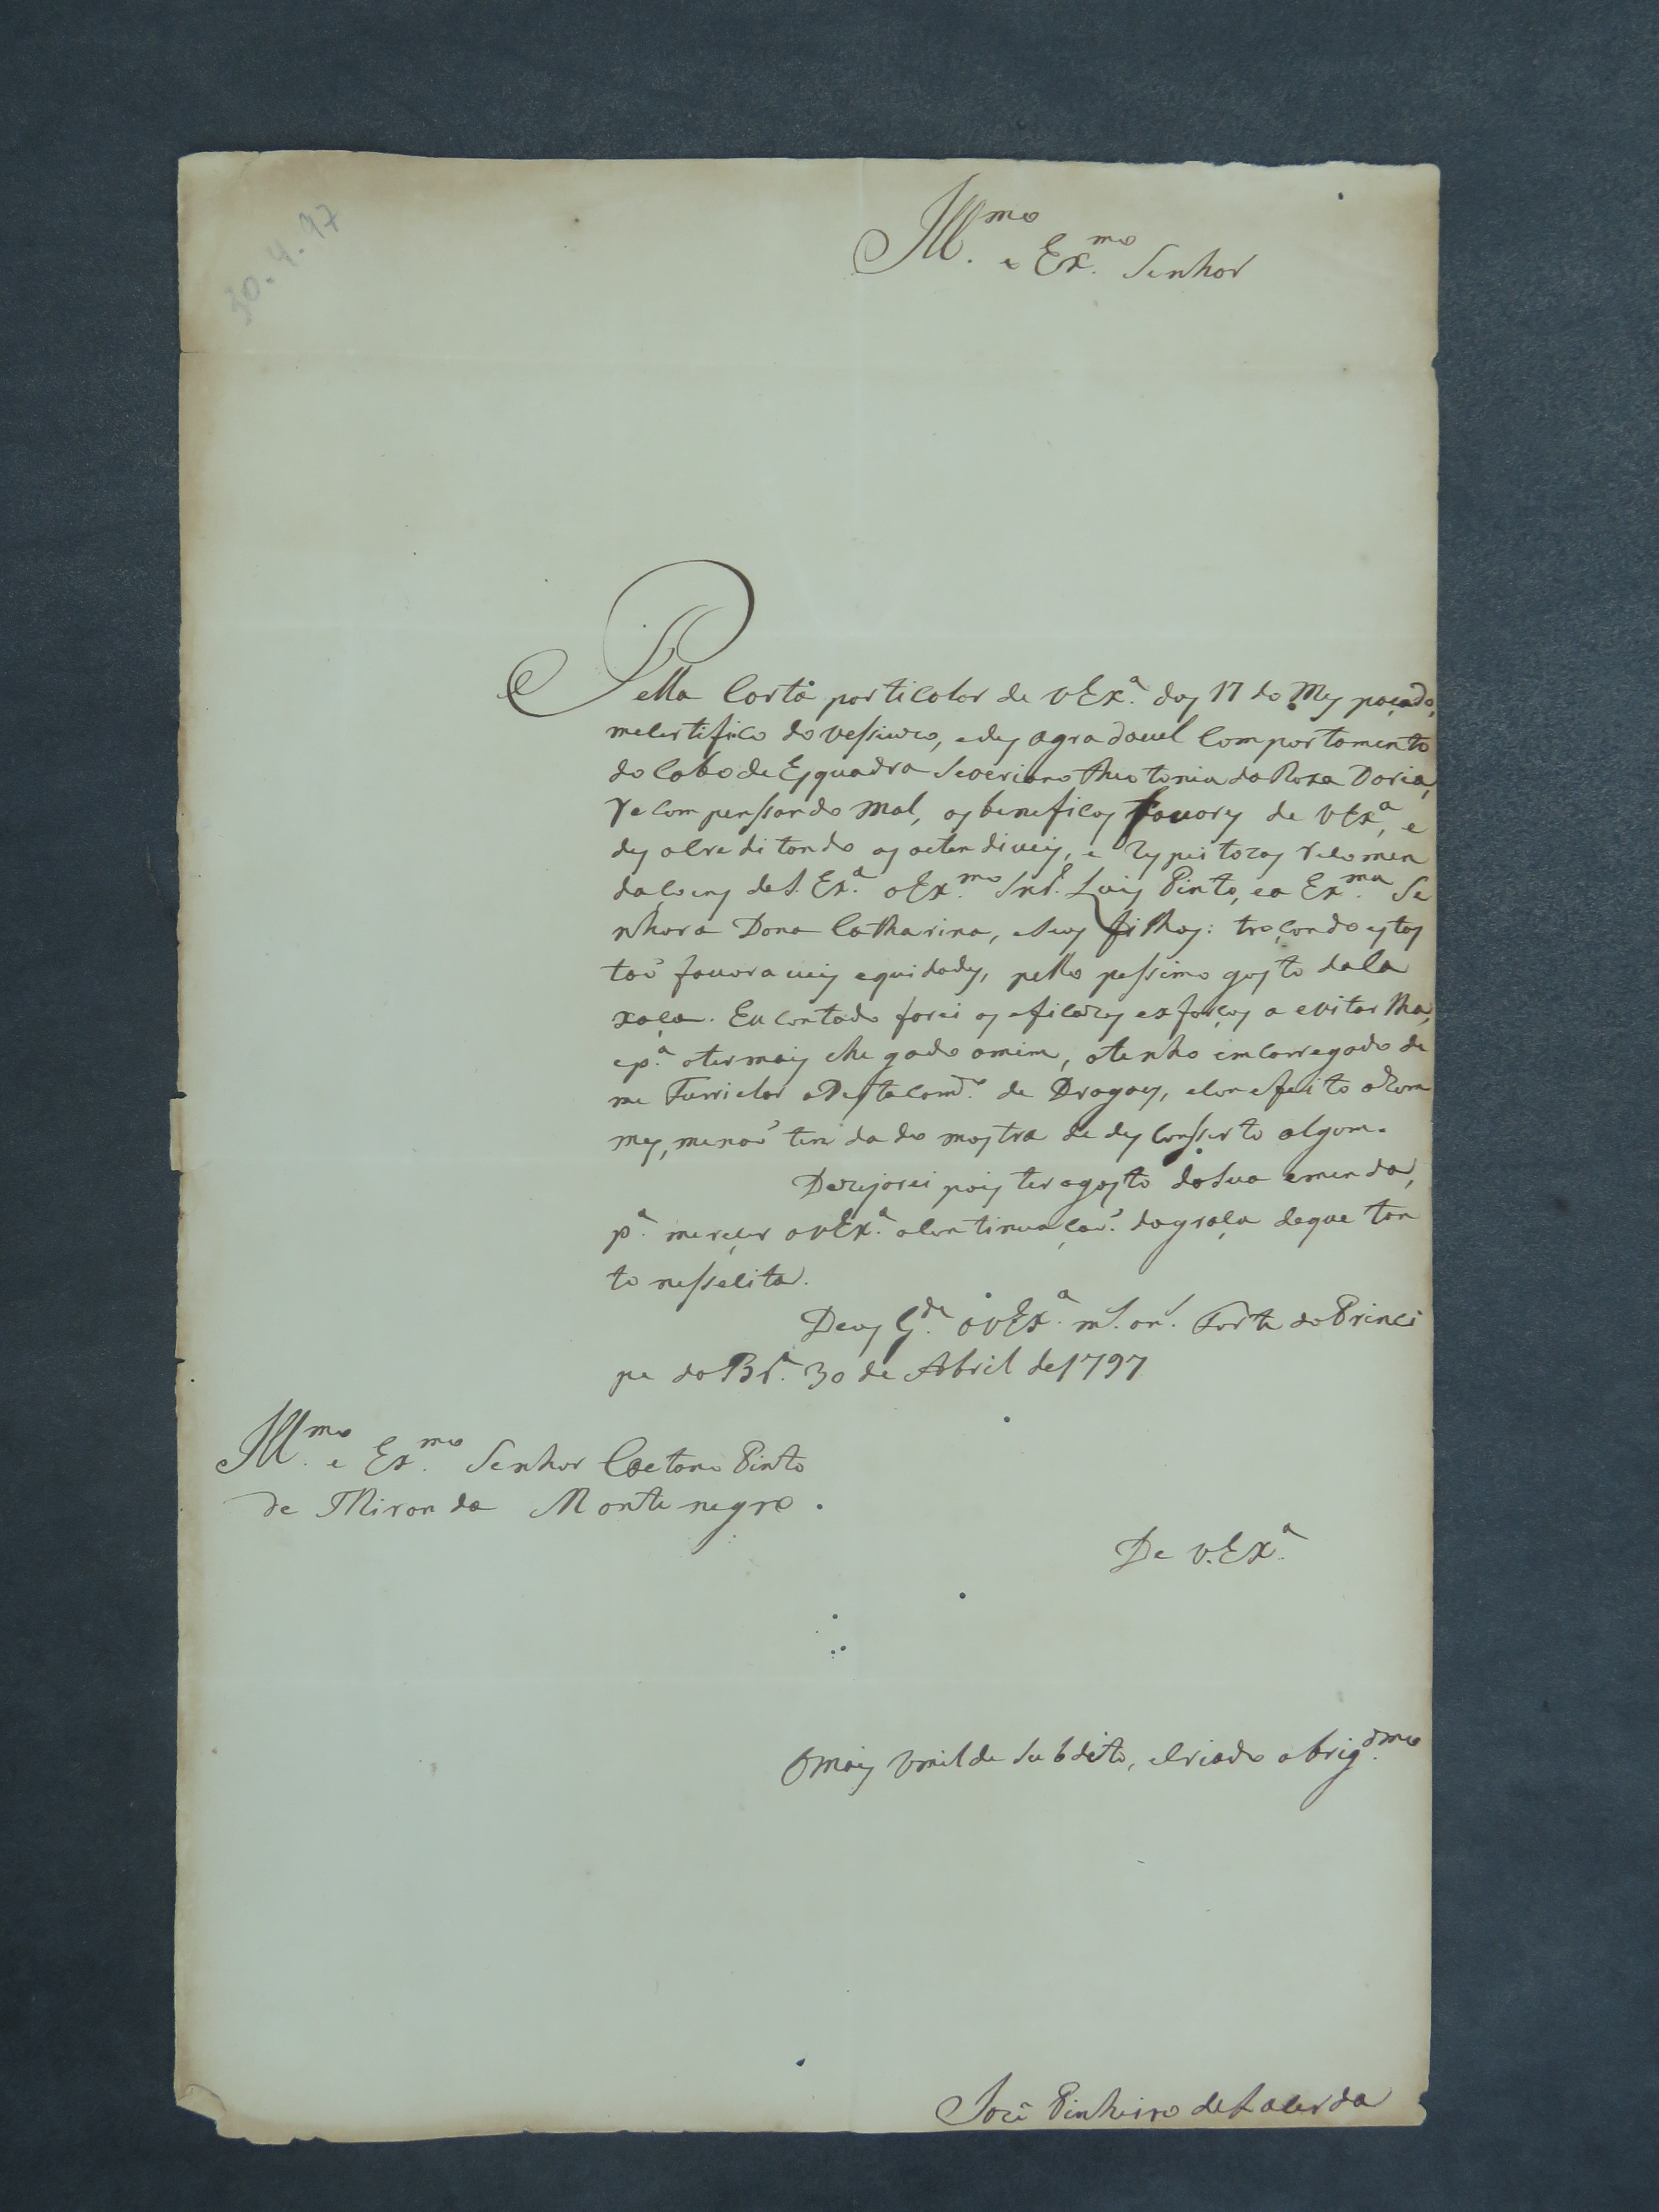 30-4-97
Ill.mo e Ex.mo Senhor
Pella Carta particolar de V Ex.a dos 17 do Mes paçado,
me certifico do vessiozo, e des agradavel comportamento
do Cabo de Esquadra Severiano Theotonio da Roxa Doria,
recompenssando mal, os beneficos favores de V Ex.a, e
des acreditando as actendiveis, e respeitozas recomen
daçoens de S. Ex.a o Ex.mo Snr. Luis Pinto, e a Ex.ma Se
nhora Dona Catharina, e seus filhos: troçando estas
taõ favoraveis equidades, pello pessimo gosto da Ca
xaça. Eu contudo farei os eficazes exforços a evitar lha,
e p.a o ter mais chegado a mim, o tenho emcarregado de
me Furrielar o Destacam.to de Dragoes, e com efeito a hum
mes, me naõ tem dado mostra de desconsserto algum.
Dezejarei pois ter o gosto da Sua emenda,
p.a mereçer a V Ex.a a continuaçaõ da graça de que tan
to nessecita.
Deos G.de a V Ex.a m.s an.s Forte do Princi
pe da B.ra 30 de Abril de 1797
Ill.mo e Ex.mo Senhor Caetano Pinto
de Miranda Montenegro.
De V. Ex.a
O mais Umilde Subdito, e Criado obrig.dmo
Jozé Pinheiro de Lacerda